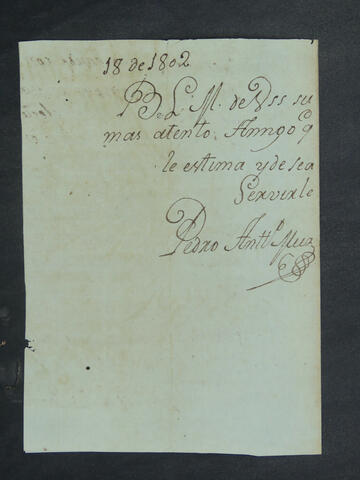 18 de 1802
B. L. M. de Vss su
mas atento Amigo q
le estima y desea
Servirle
Pedro Antº